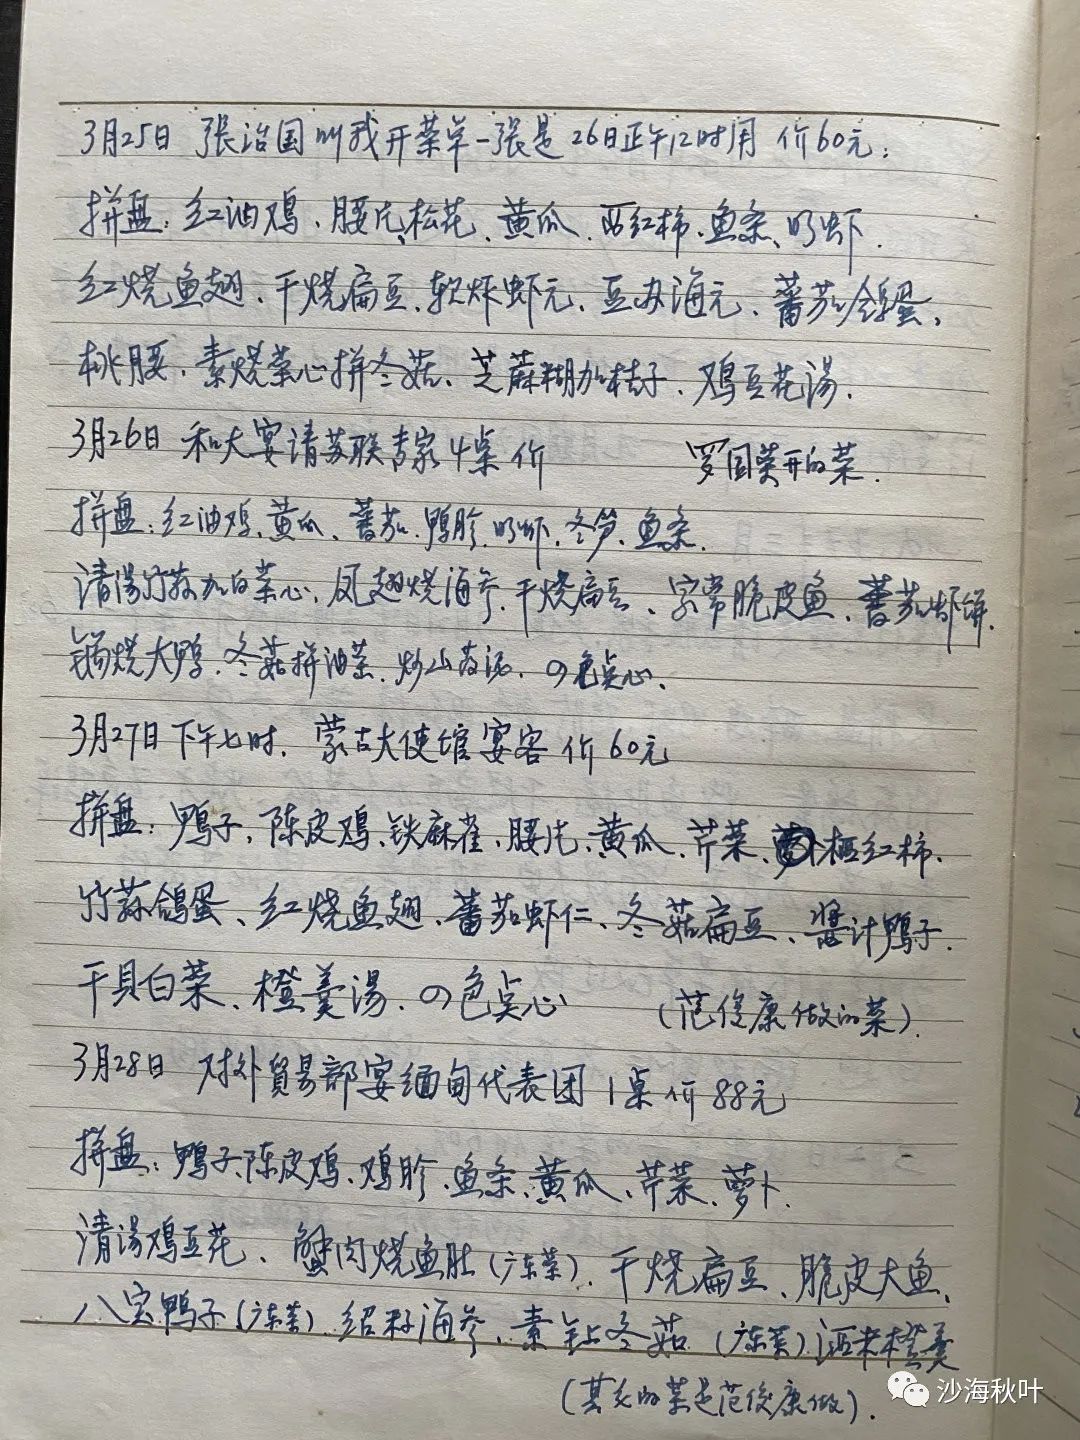 3月25日 張治国叫我开菜单一張是26日正午12时用 价60元:
拼盘:红油鸡、腰片、松花、黄瓜、西红柿、鱼条、明虾.
红烧鱼翅、干烧扁豆、软炸虾元、豆办海元、蕃茄鸽蛋、
桃腰、素烧菜心拼冬菇、芝蔴糊加桔子、鸡豆花湯.
3月26日 和大宴请苏联专家4桌价 罗国荣开的菜.
拼盘:红油鸡、黄瓜、蕃茄、鸭胗、明虾、冬笋、鱼条.
清湯竹荪加白菜心、凤翅烧海参、干烧扁豆、家常脆皮鱼、蕃茄虾餅.
锅烧大鸭、冬菇拼油菜、炒山药泥、四色点心.
3月27日下午七时. 蒙古大使馆宴客 价60元
拼盘:鸭子、陈皮鸡、铁麻雀、腰片、黄瓜、芹菜、西红柿.
竹荪鸽蛋、红烧鱼翅、蕃茄虾仁、冬菇扁豆、醬汁鸭子.
干貝白菜、橙羹湯、四色点心 (范俊康做的菜).
3月28日 对外貿易部宴缅甸代表团1桌价88元
拼盘:鸭子、陈皮鸡、鸡胗、鱼条、黄瓜、芹菜、萝卜.
清湯鸡豆花、蟹肉烧鱼肚(广东菜)、干烧扁豆、脆皮大鱼、
八宝鸭子(广东菜)、绍子海参、素 冬菇.(广东菜)酒米橙羹
(其它的菜是范俊康做).
沙海秋叶